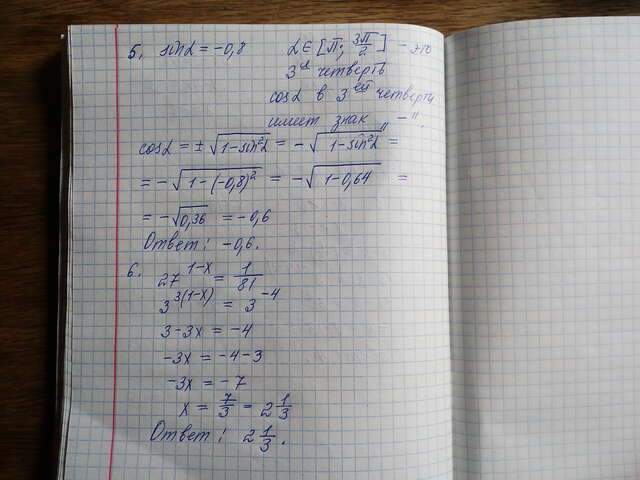 5. sinα = -0,8   α ∈ [π; 3π/2] - это
3ья четверть
cosα в 3-ей четверти
имеет знак "-".
cosα = ±√(1-sin²α) = -√(1-sin²α) =
= -√(1-(-0,8)²) = -√(1-0,64) =
= -√0,36 = -0,6
Ответ: -0,6.
6. 27^(1-x) = 1/81
3^(3(1-x)) = 3^(-4)
3-3x = -4
-3x = -4-3
-3x = -7
x = 7/3 = 2 1/3
Ответ: 2 1/3.